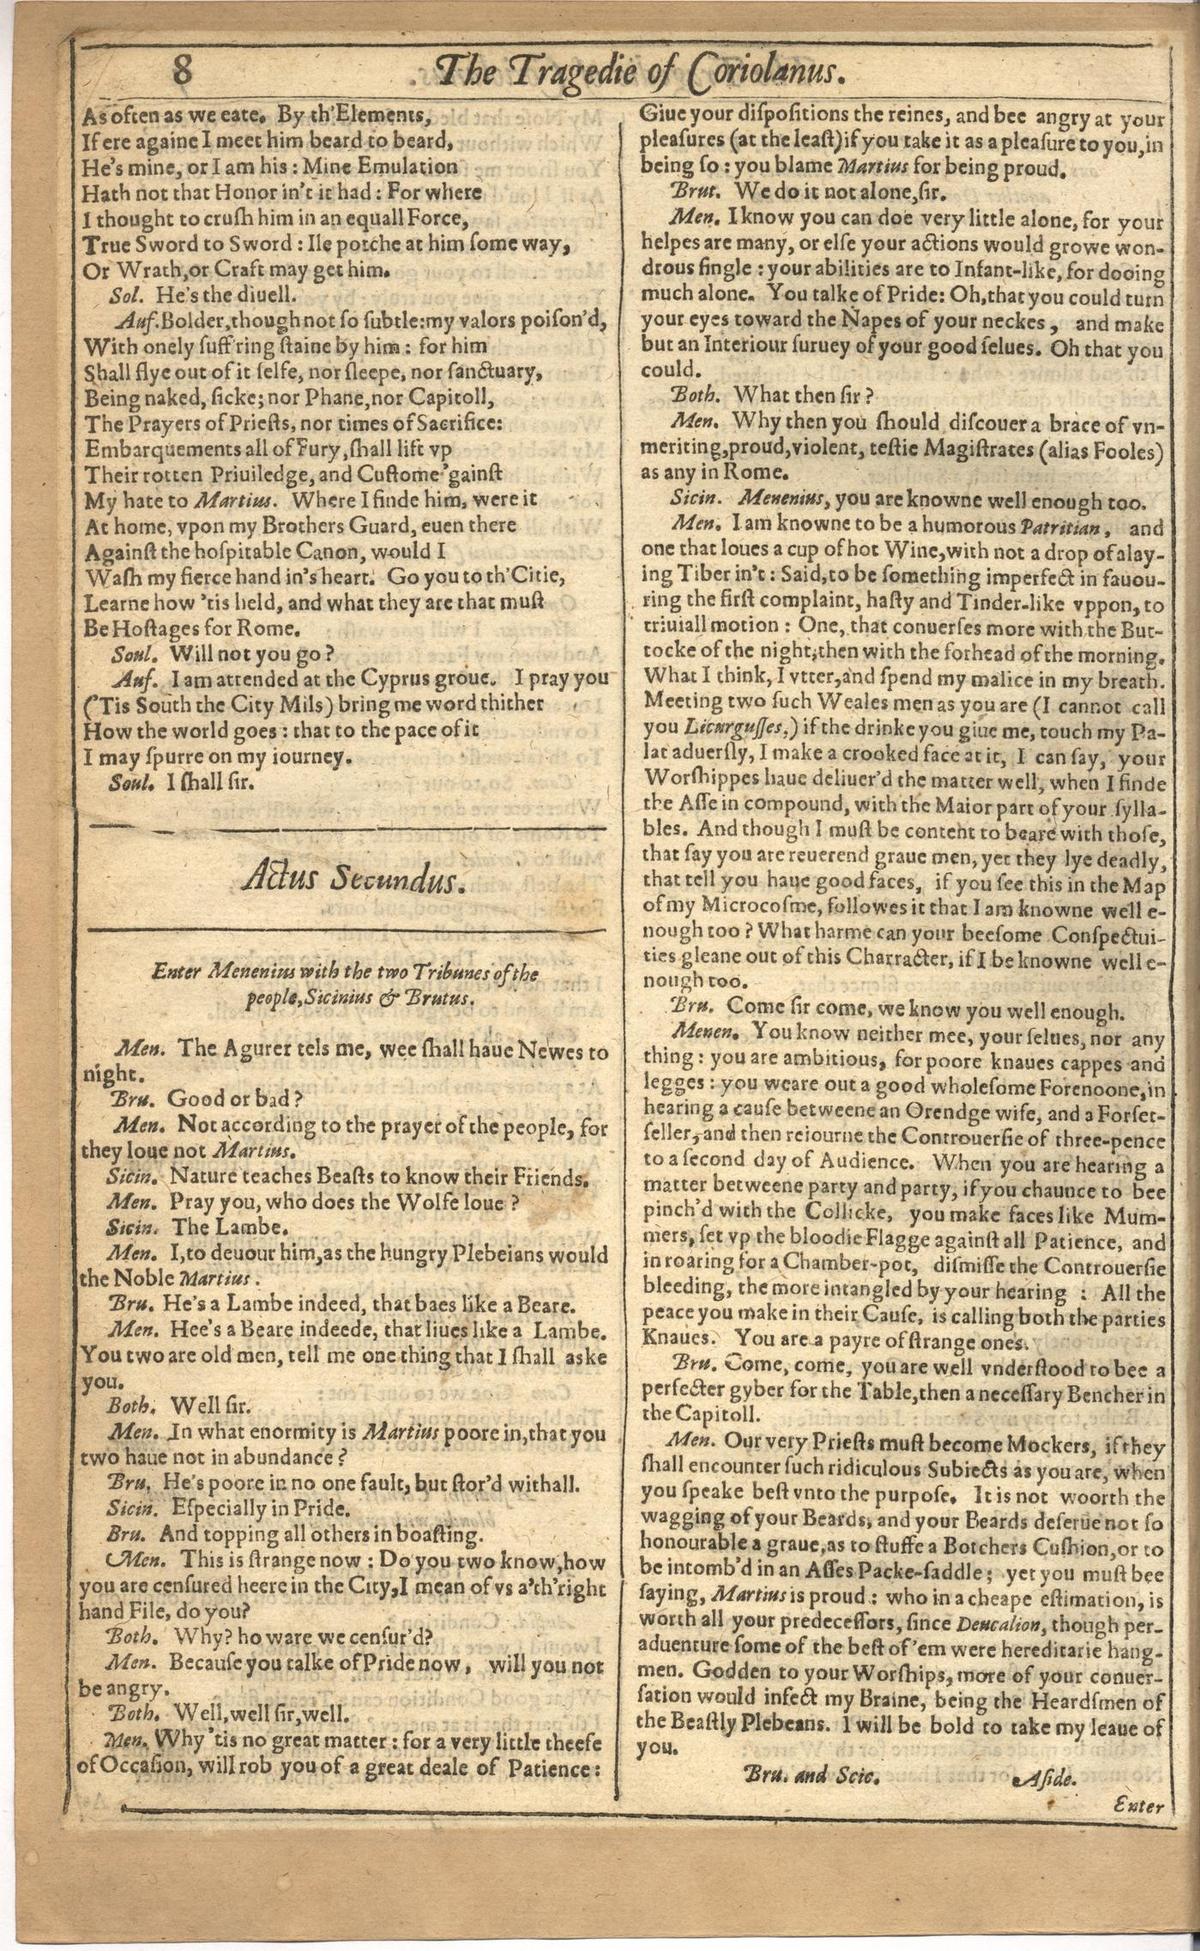 8 The Tragedie of Coriolanus.
As often as we eate. By th'Elements,
If ere againe I meet him beard to beard,
He's mine, or I am his: Mine Emulation
Hath not that Honor in't it had: For where
I thought to cruſh him in an equall Force,
True Sword to Sword: Ile potche at him ſome way,
Or Wrath, or Craft may get him.
Sol. He's the diuell.
Auf. Bolder, though not ſo ſubtle: my valors poiſon'd,
With onely ſuff'ring ſtaine by him: for him
Shall flye out of it ſelfe, nor ſleepe, nor ſanctuary,
Being naked, ſicke; nor Phane, nor Capitoll,
The Prayers of Prieſts, nor times of Sacrifice:
Embarquements all of Fury, ſhall lift vp
Their rotten Priuiledge, and Cuſtome 'gainſt
My hate to Martius. Where I finde him, were it
At home, vpon my Brothers Guard, euen there
Againſt the hoſpitable Canon, would I
Waſh my fierce hand in's heart. Go you to th'Citie,
Learne how 'tis held, and what they are that muſt
Be Hoſtages for Rome.
Soul. Will not you go?
Auf. I am attended at the Cyprus groue. I pray you
('Tis South the City Mils) bring me word thither
How the world goes: that to the pace of it
I may ſpurre on my iourney.
Soul. I ſhall ſir.
Actus Secundus.
Enter Menenius with the two Tribunes of the
people, Sicinius & Brutus.
Men. The Agurer tels me, wee ſhall haue Newes to
night.
Bru. Good or bad?
Men. Not according to the prayer of the people, for
they loue not Martius.
Sicin. Nature teaches Beaſts to know their Friends.
Men. Pray you, who does the Wolfe loue?
Sicin. The Lambe.
Men. I, to deuour him, as the hungry Plebeians would
the Noble Martius.
Bru. He's a Lambe indeed, that baes like a Beare.
Men. Hee's a Beare indeede, that liues like a Lambe.
You two are old men, tell me one thing that I ſhall aske
you.
Both. Well ſir.
Men. In what enormity is Martius poore in, that you
two haue not in abundance?
Bru. He's poore in no one fault, but ſtor'd withall.
Sicin. Eſpecially in Pride.
Bru. And topping all others in boaſting.
Men. This is ſtrange now: Do you two know, how
you are cenſured heere in the City, I mean of vs a'th'right
hand File, do you?
Both. Why? ho ware we cenſur'd?
Men. Becauſe you talke of Pride now, will you not
be angry.
Both. Well, well ſir, well.
Men. Why 'tis no great matter: for a very little theefe
of Occaſion, will rob you of a great deale of Patience:
Giue your diſpoſitions the reines, and bee angry at your
pleaſures (at the leaſt) if you take it as a pleaſure to you, in
being ſo: you blame Martius for being proud.
Brut. We do it not alone, ſir.
Men. I know you can doe very little alone, for your
helpes are many, or elſe your actions would growe won-
drous ſingle: your abilities are to Infant-like, for dooing
much alone. You talke of Pride: Oh, that you could turn
your eyes toward the Napes of your neckes, and make
but an Interiour ſuruey of your good ſelues. Oh that you
could.
Both. What then ſir?
Men. Why then you ſhould diſcouer a brace of vn-
meriting, proud, violent, teſtie Magiſtrates (alias Fooles)
as any in Rome.
Sicin. Menenius, you are knowne well enough too.
Men. I am knowne to be a humorous Patritian, and
one that loues a cup of hot Wine, with not a drop of alay-
ing Tiber in't: Said, to be ſomething imperfect in fauou-
ring the firſt complaint, haſty and Tinder-like vppon, to
triuiall motion: One, that conuerſes more with the But-
tocke of the night, then with the forhead of the morning.
What I think, I vtter, and ſpend my malice in my breath.
Meeting two ſuch Weales men as you are (I cannot call
you Licurguſſes,) if the drinke you giue me, touch my Pa-
lat aduerſly, I make a crooked face at it, I can ſay, your
Worſhippes haue deliuer'd the matter well, when I finde
the Aſſe in compound, with the Maior part of your ſylla-
bles. And though I muſt be content to beare with thoſe,
that ſay you are reuerend graue men, yet they lye deadly,
that tell you haue good faces, if you ſee this in the Map
of my Microcoſme, followes it that I am knowne well e-
nough too? What harme can your beeſome Conſpectui-
ties gleane out of this Charracter, if I be knowne well e-
nough too.
Bru. Come ſir come, we know you well enough.
Menen. You know neither mee, your ſelues, nor any
thing: you are ambitious, for poore knaues cappes and
legges: you weare out a good wholeſome Forenoone, in
hearing a cauſe betweene an Orendge wife, and a Forſet-
ſeller, and then reiourne the Controuerſie of three-pence
to a ſecond day of Audience. When you are hearing a
matter betweene party and party, if you chaunce to bee
pinch'd with the Collicke, you make faces like Mum-
mers, ſet vp the bloodie Flagge againſt all Patience, and
in roaring for a Chamber-pot, diſmiſſe the Controuerſie
bleeding, the more intangled by your hearing: All the
peace you make in their Cauſe, is calling both the parties
Knaues. You are a payre of ſtrange ones.
Bru. Come, come, you are well vnderſtood to bee a
perfecter gyber for the Table, then a neceſſary Bencher in
the Capitoll.
Men. Our very Prieſts muſt become Mockers, if they
ſhall encounter ſuch ridiculous Subiects as you are, when
you ſpeake beſt vnto the purpoſe. It is not woorth the
wagging of your Beards, and your Beards deſerue not ſo
honourable a graue, as to ſtuffe a Botchers Cuſhion, or to
be intomb'd in an Aſſes Packe-ſaddle; yet you muſt bee
ſaying, Martius is proud: who in a cheape eſtimation, is
worth all your predeceſſors, ſince Deucalion, though per-
aduenture ſome of the beſt of 'em were hereditarie hang-
men. Godden to your Worſhips, more of your conuer-
ſation would infect my Braine, being the Heardſmen of
the Beaſtly Plebeans. I will be bold to take my leaue of
you.
Bru. and Scic. Aſide.
Enter